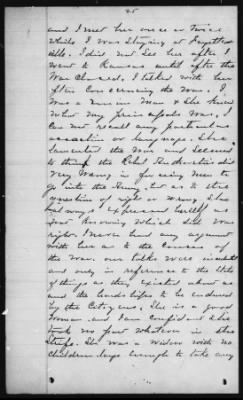 25
and I met her once or twice
while I was staying at Fayette
ville. I did not see her after I
went to Kansas until after the
War closed. I talked with her
often concerning the War. I
was a Union man & she knew
what my principles was. I
can not recall any particular
occasion or language. She
lamented the War and seemed
to think the Rebel authorities did
very wrong in forcing men to
go into the Army, but as to the
question of right or wrong she
always expressed herself as
not knowing which side was
right. I never had any argument
with her as to the causes of
the War. Our talks were
and only in reference to the state
of things as they existed about us
and the hardships to be endured
by the Citizens. She is a good
woman and I am confident she
took no part whatever in the
strife. She was a widow with no
children large enough to take any